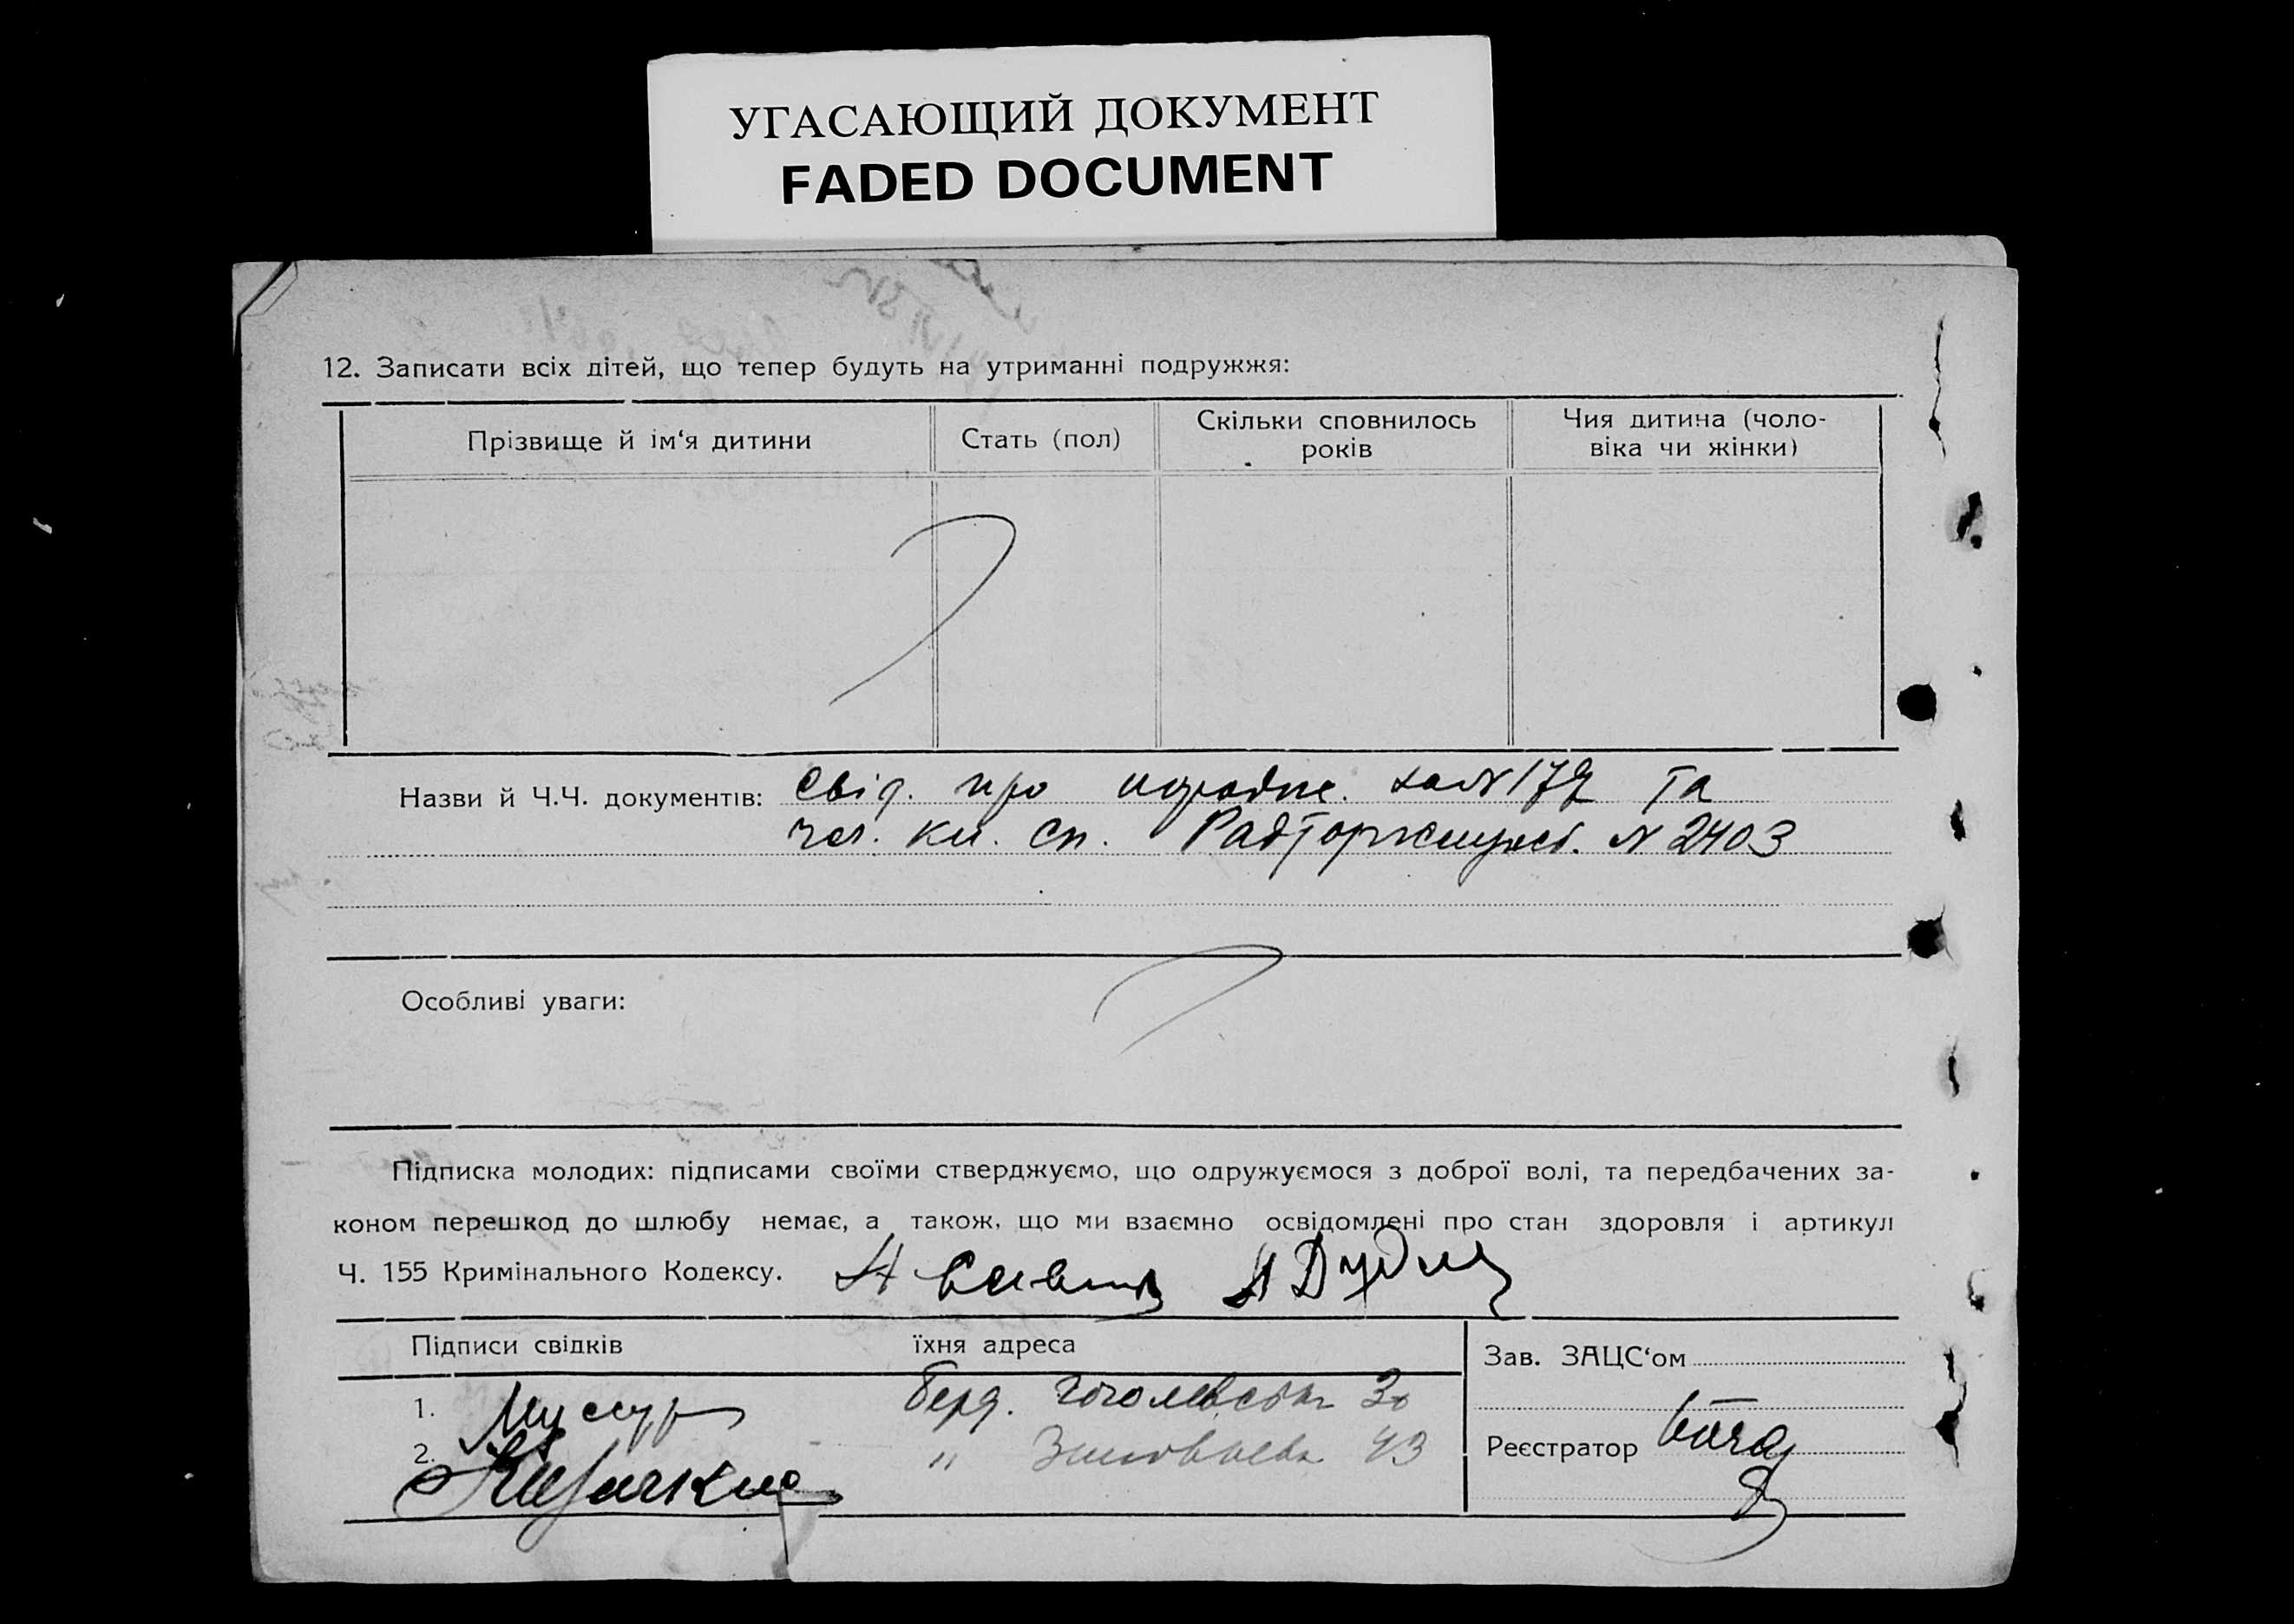 УГАСАЮЩИЙ ДОКУМЕНТ
FADED DOCUMENT
12. Записати всіх дітей, що тепер будуть на утриманні подружжя:
Прізвище й ім‘я дитини
Стать (пол)
Скільки сповнилось
років
Чия дитина (чоло-
віка чи жінки)
Назви й Ч.Ч. документів:
свід. про за № та
чл. кн. сп. № 2403
Особливі уваги:
Підписка молодих: підписами своїми стверджуємо, що одружуємося з доброї волі, та передбачених за-
коном перешкод до шлюбу немає, а також, що ми взаємно освідомлені про стан здоровля і артикул
Ч. 155 Кримінального Кодексу.
Підписи свідків
їхня адреса
Зав. ЗАЦС‘ом
1.
Берд.
2.
" 43
Реєстратор